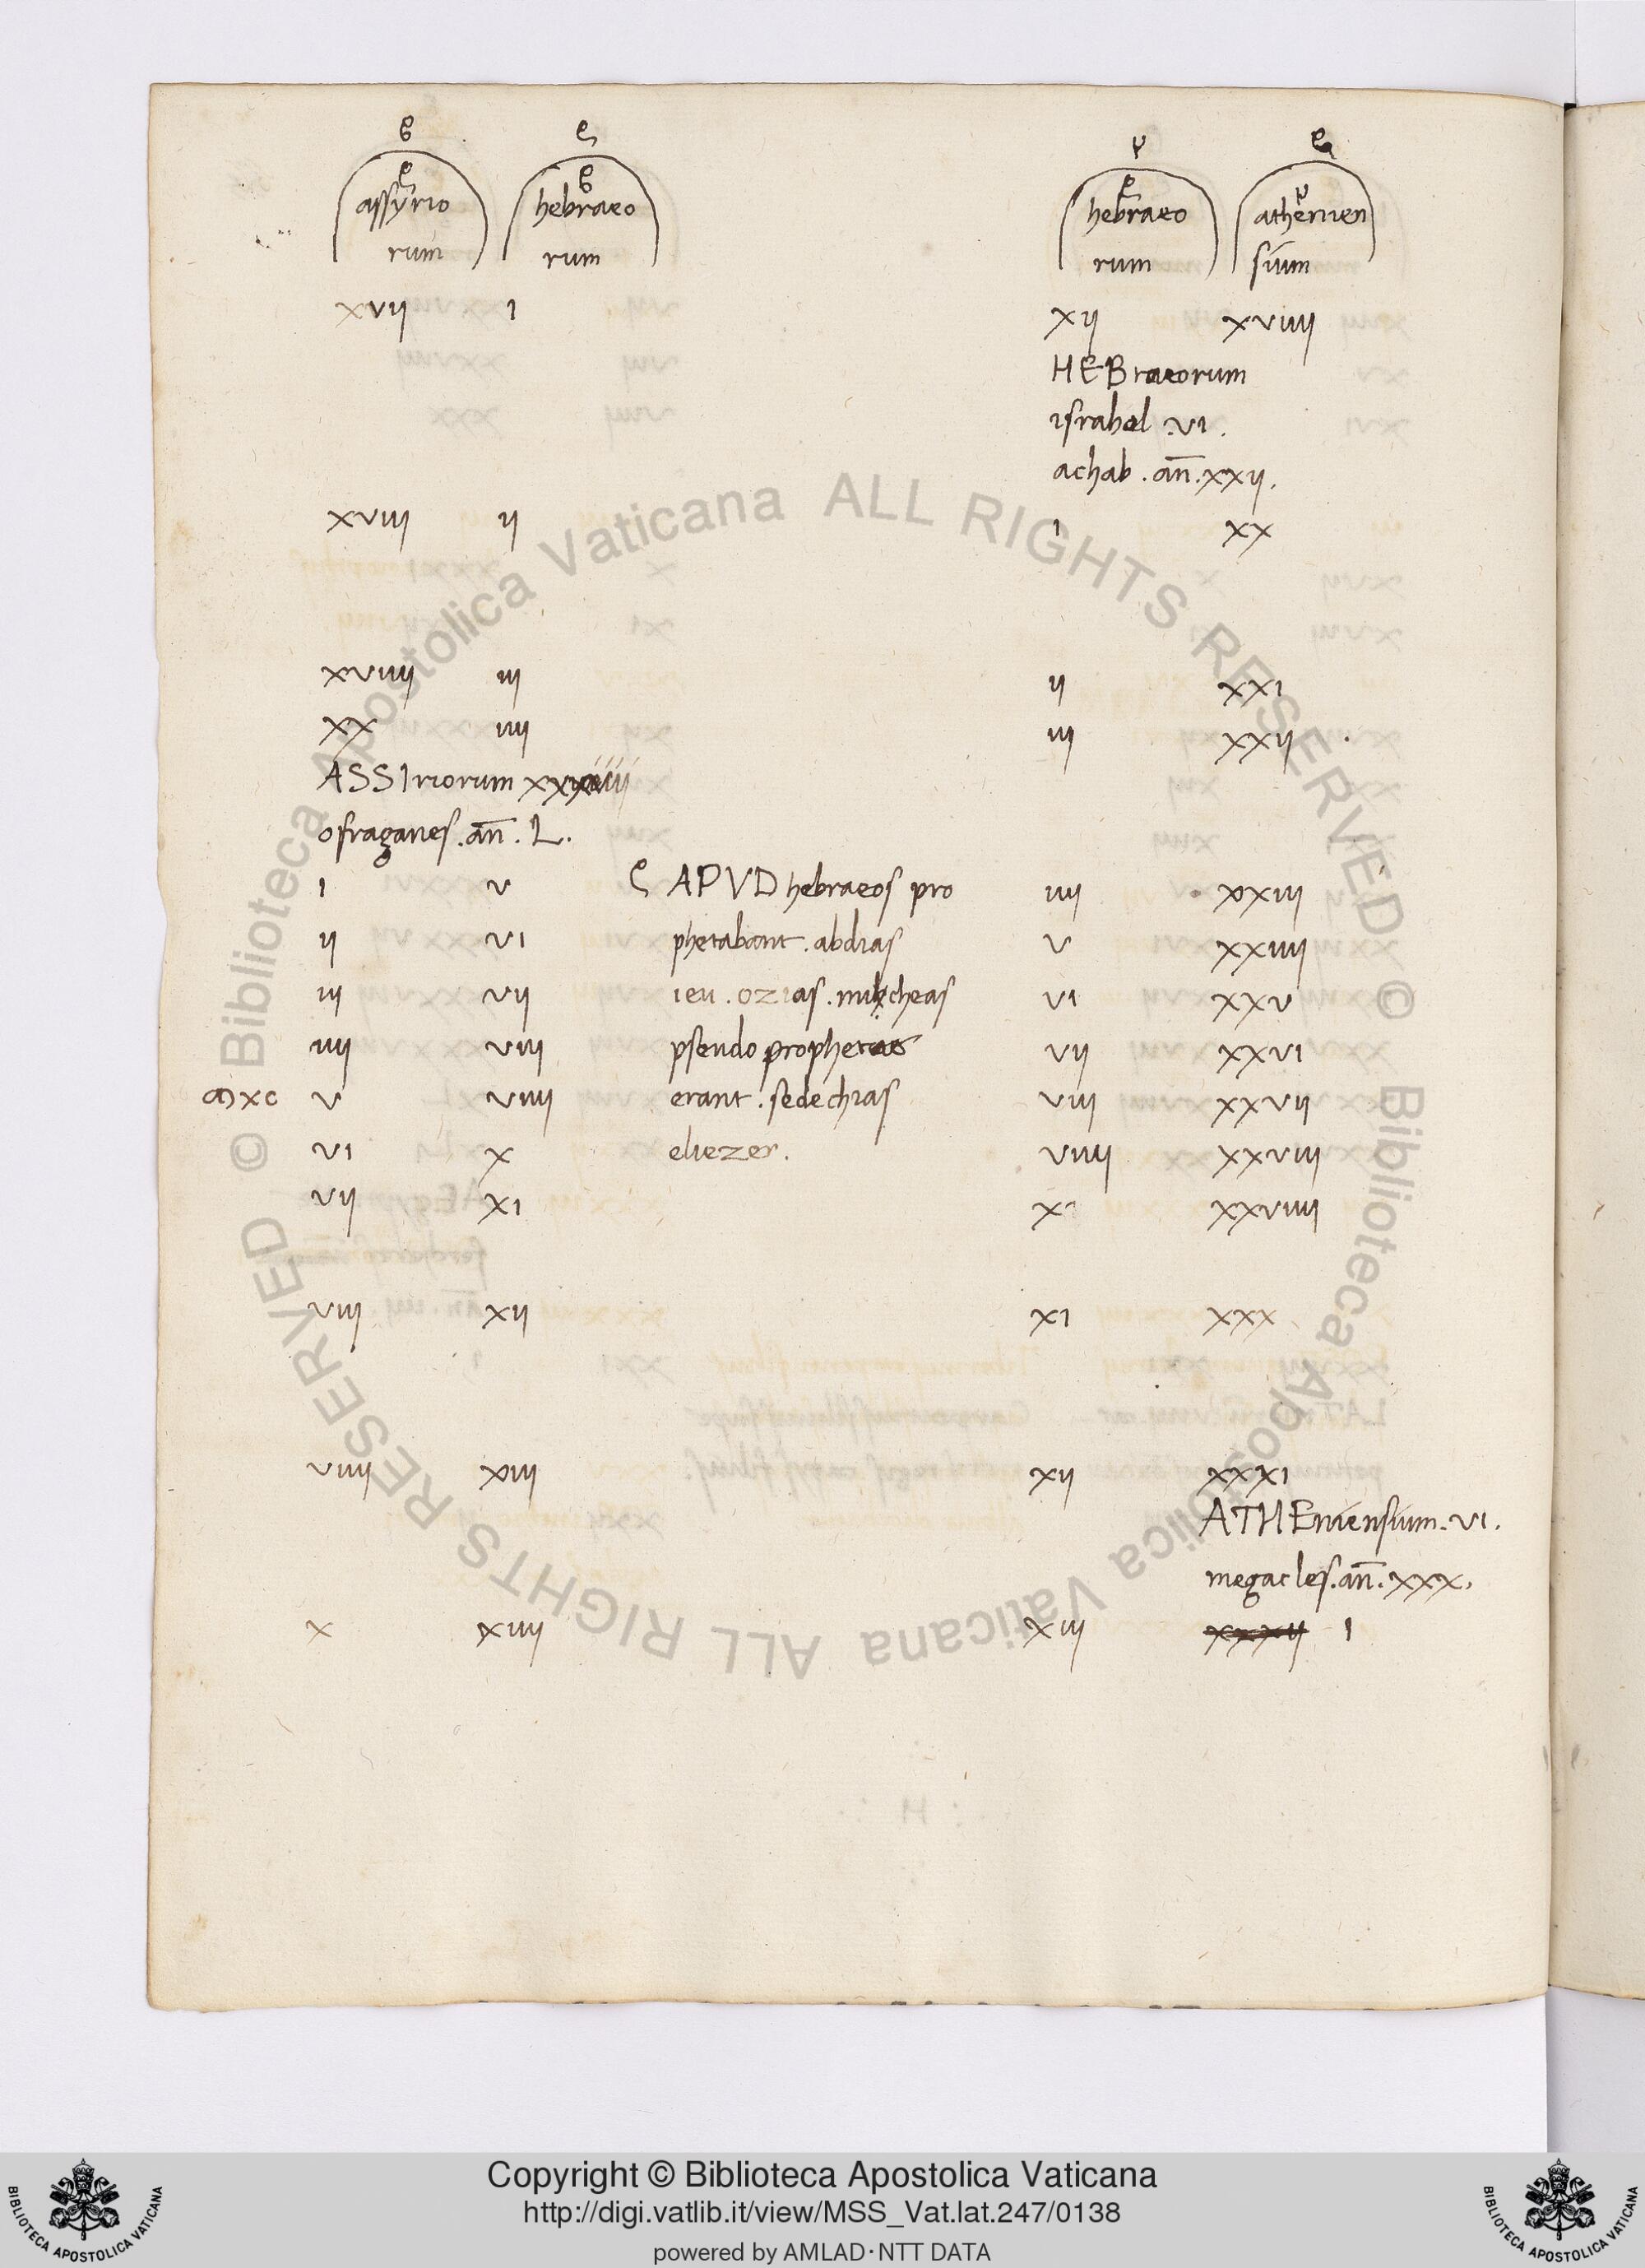 assyrio hebraeo hebraeo athenien
rum rum rum sium
xvij i xij xviiij
HEBraeorum
israhel .vi.
achab . an̄ . xxij.
xviij ij i xx
xviiij iij ij xxi
xx iiij iij xxij
ASSIriorum
ofraganes . an̄ . L.
i v APVD hebraeos pro iiij xxiij
ij vi phetabant . abdias v xxiiij
iij vij ieu . ozias . micheas vi xxv
iiij viij pseudo prophetae vij xxvi
xc v viiij erant . sedechias viij xxvij
vi x eliezer . viiij xxviij
vij xi x xxviiij
viij xij xi xxx
viiij xiij xij xxxi
ATHEniensium . vi.
megacles . an̄ . xxx.
x xiiij xiij xxxij i
© Biblioteca Apostolica Vaticana ALL RIGHTS RESERVED © Biblioteca Apostolica Vaticana ALL RIGHTS RESERVED
Copyright © Biblioteca Apostolica Vaticana
http://digi.vatlib.it/view/MSS_Vat.lat.247/0138
powered by AMLAD·NTT DATA
BIBLIOTECA APOSTOLICA VATICANA
BIBLIOTECA APOSTOLICA VATICANA